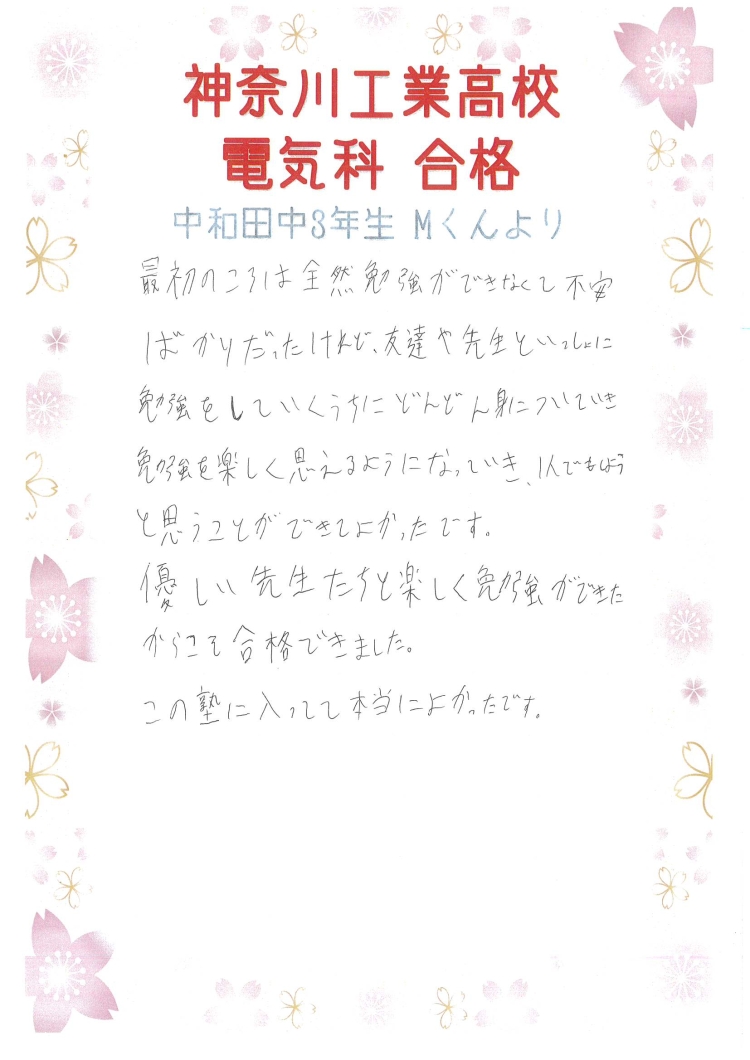 神奈川工業高校
電気科 合格
中和田中3年生 Mくんより
最初のころは全然勉強ができなくて不安
ばかりだったけれど、友達や先生といっしょに
勉強をしていくうちにどんどん身についていき
勉強を楽しく思えるようになっていき、1人でもしよう
と思うことができてよかったです。
優しい先生たちと楽しく勉強ができた
からこそ合格できました。
この塾に入ってて本当によかったです。